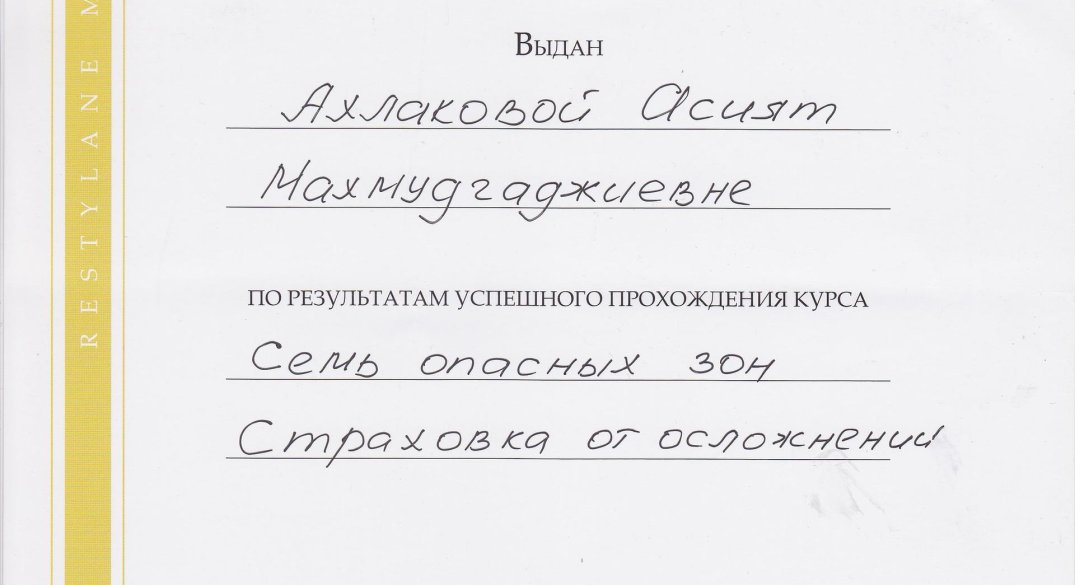 RESTYLANE M
Выдан
Ахлаковой Асият
Махмудгаджиевне
ПО РЕЗУЛЬТАТАМ УСПЕШНОГО ПРОХОЖДЕНИЯ КУРСА
Семь опасных зон
Страховка от осложнений